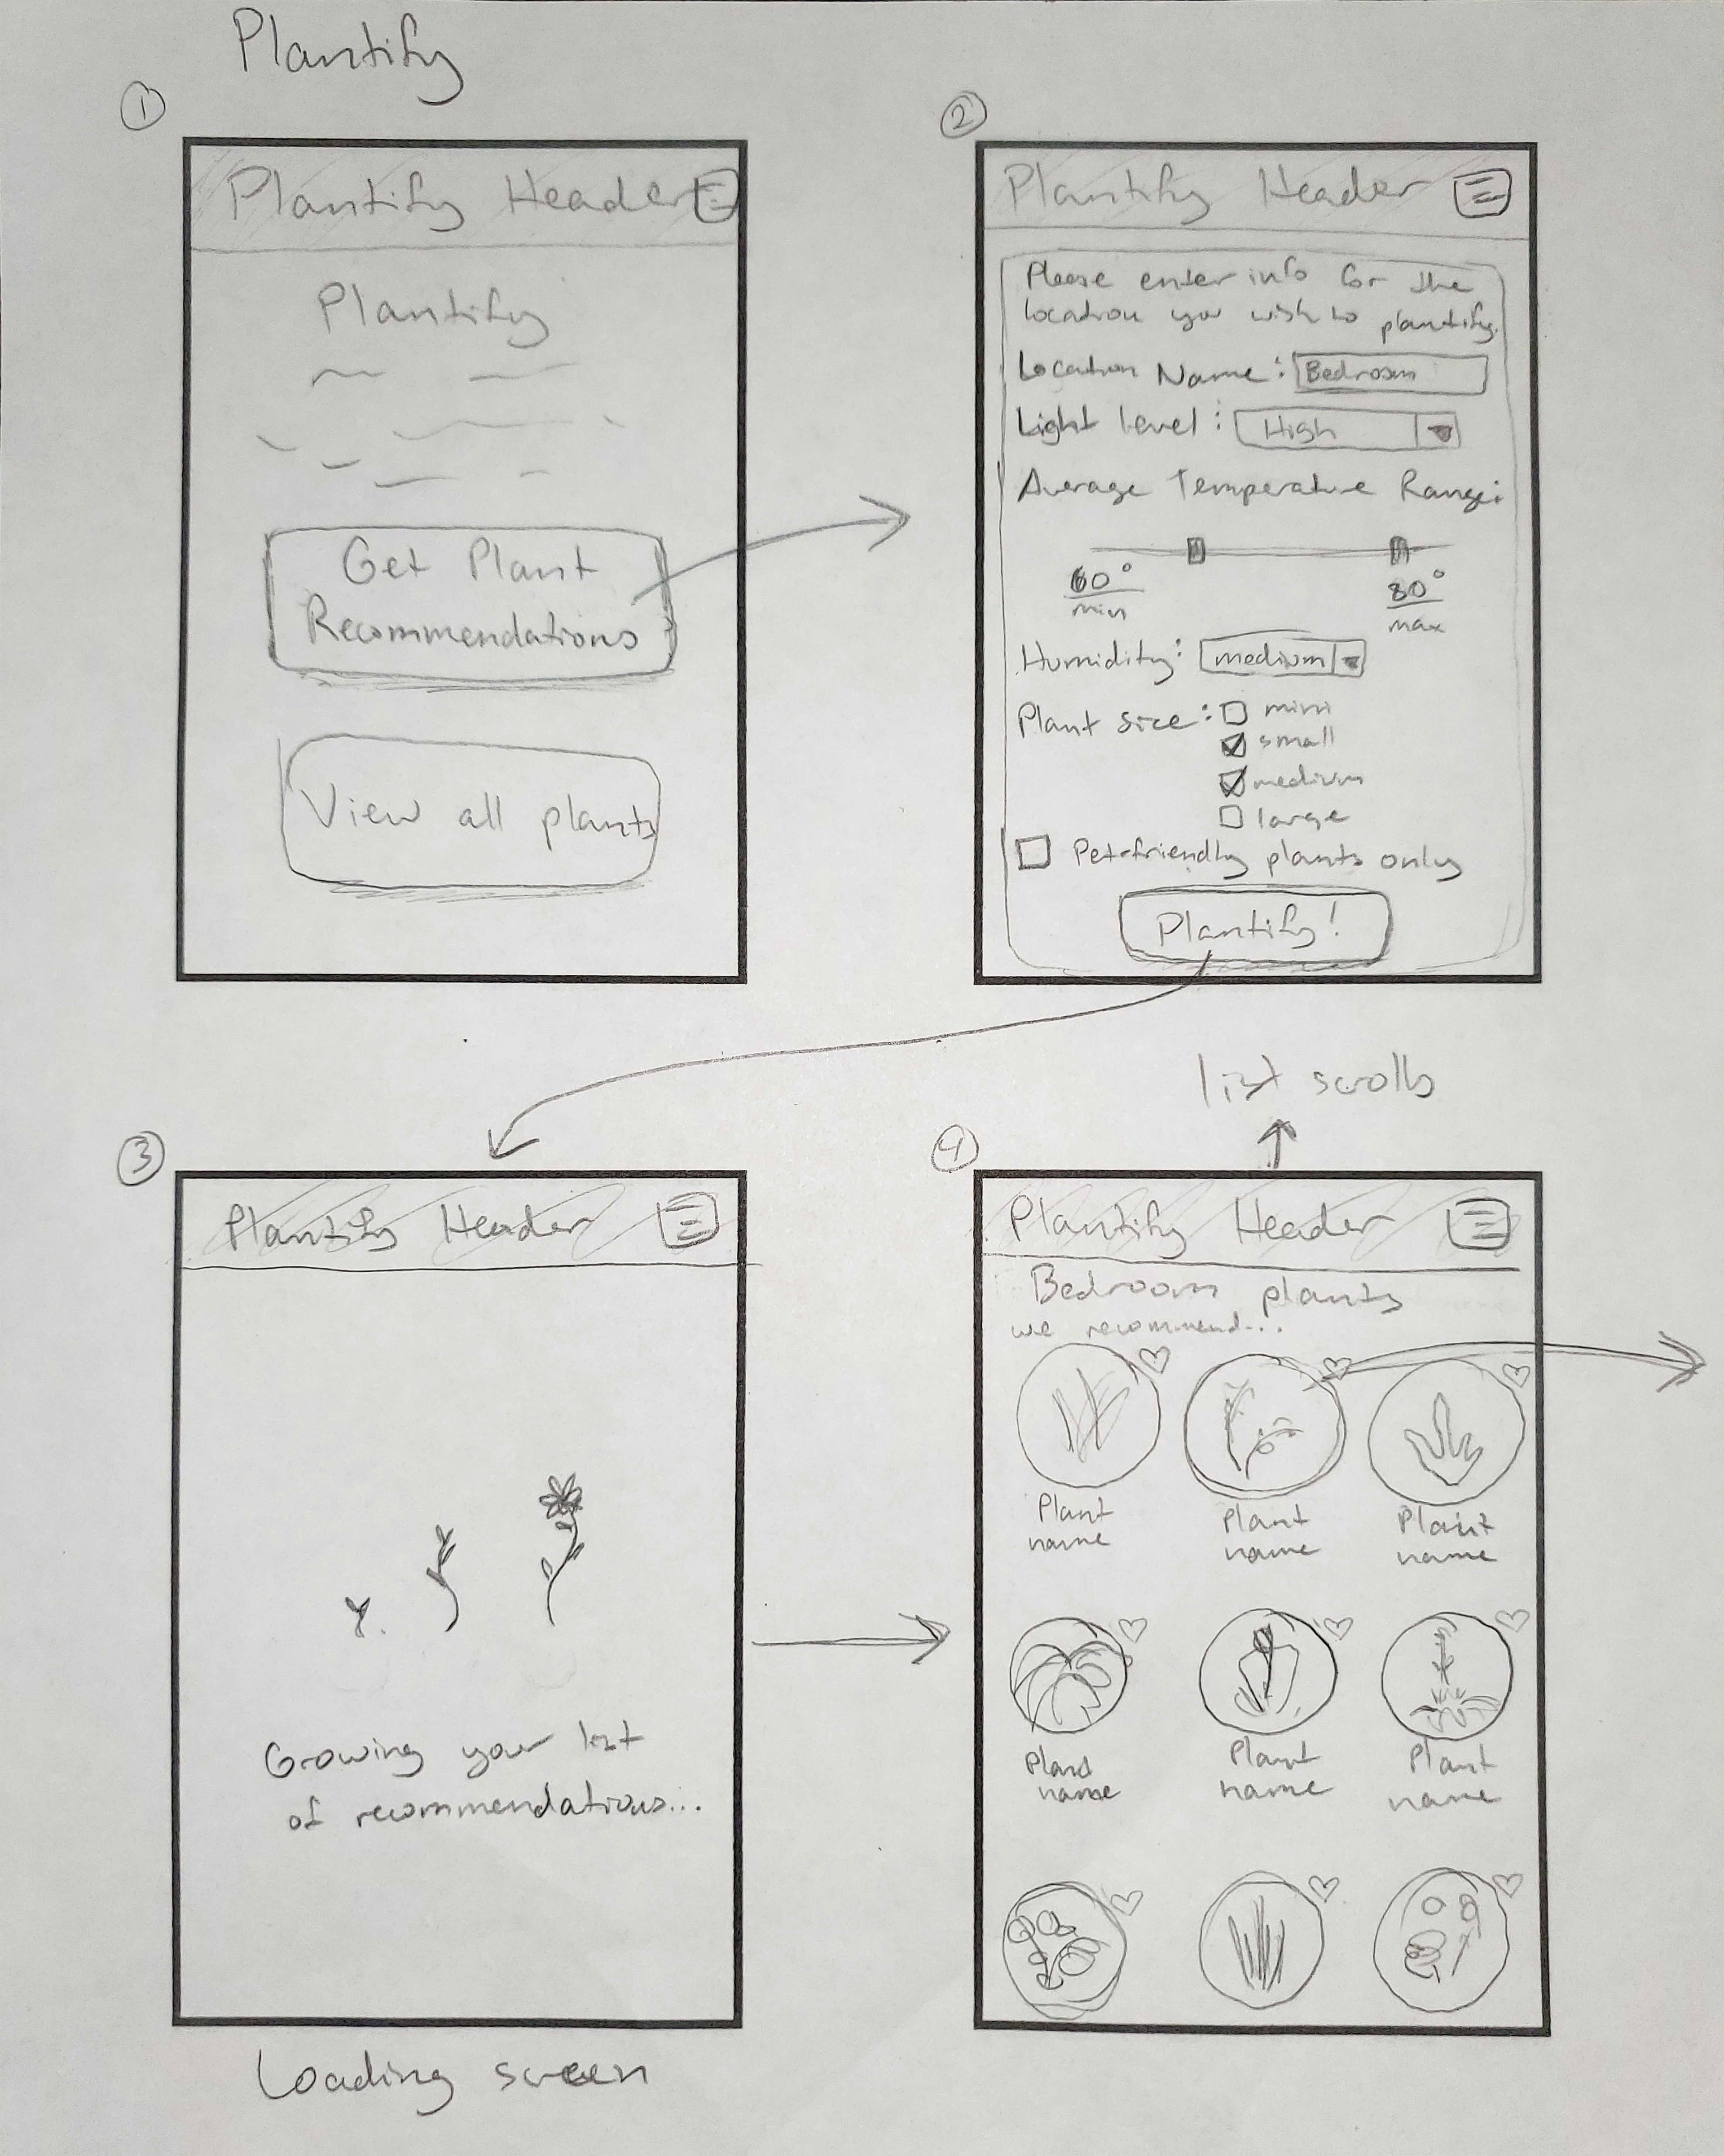 Plantify
1
Plantify Header
Plantify
Get Plant
Recommendations
View all plants
2
Plantify Header
Please enter info for the
location you wish to plantify.
Location Name: Bedroom
Light level: High
Average Temperature Range:
60° 80°
min max
Humidity: medium
Plant size: mini
small
medium
large
Pet-friendly plants only
Plantify!
3
Plantify Header
Growing your list
of recommendations...
Loading screen
list scrolls
4
Plantify Header
Bedroom plants
we recommend...
Plant Plant Plant
name name name
Plant Plant Plant
name name name